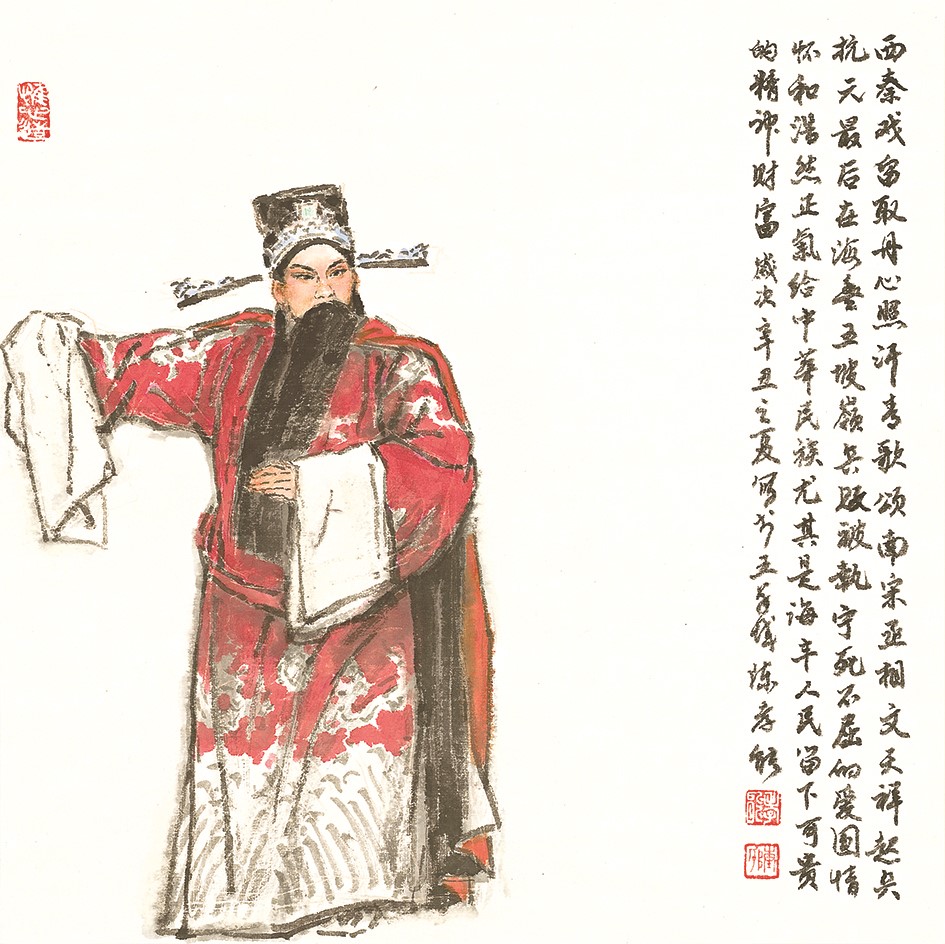 西秦戏留取丹心照汗青歌颂南宋丞相文天祥起兵
抗元最后在海丰五坡岭兵败被执宁死不屈的爱国情
怀和浩然正气给中华民族尤其是海丰人民留下可贵
的精神财富岁次辛丑之夏写于五羊城陈孝能